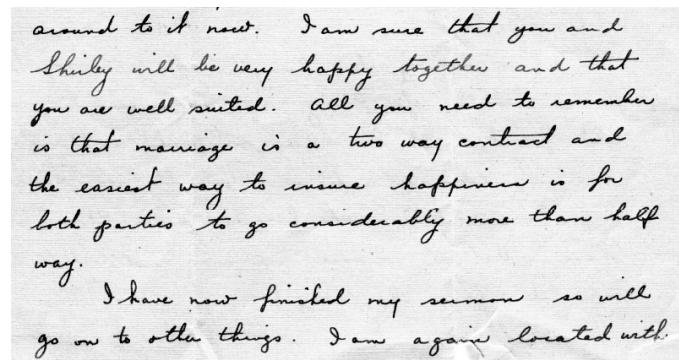 around to it now. I am sure that you and
Shirley will be very happy together and that
you are well suited. All you need to remember
is that marriage is a two way contract and
the easiest way to insure happiness is for
both parties to go considerably more than half
way.
I have now finished my sermon so will
go on to other things. I am again located with